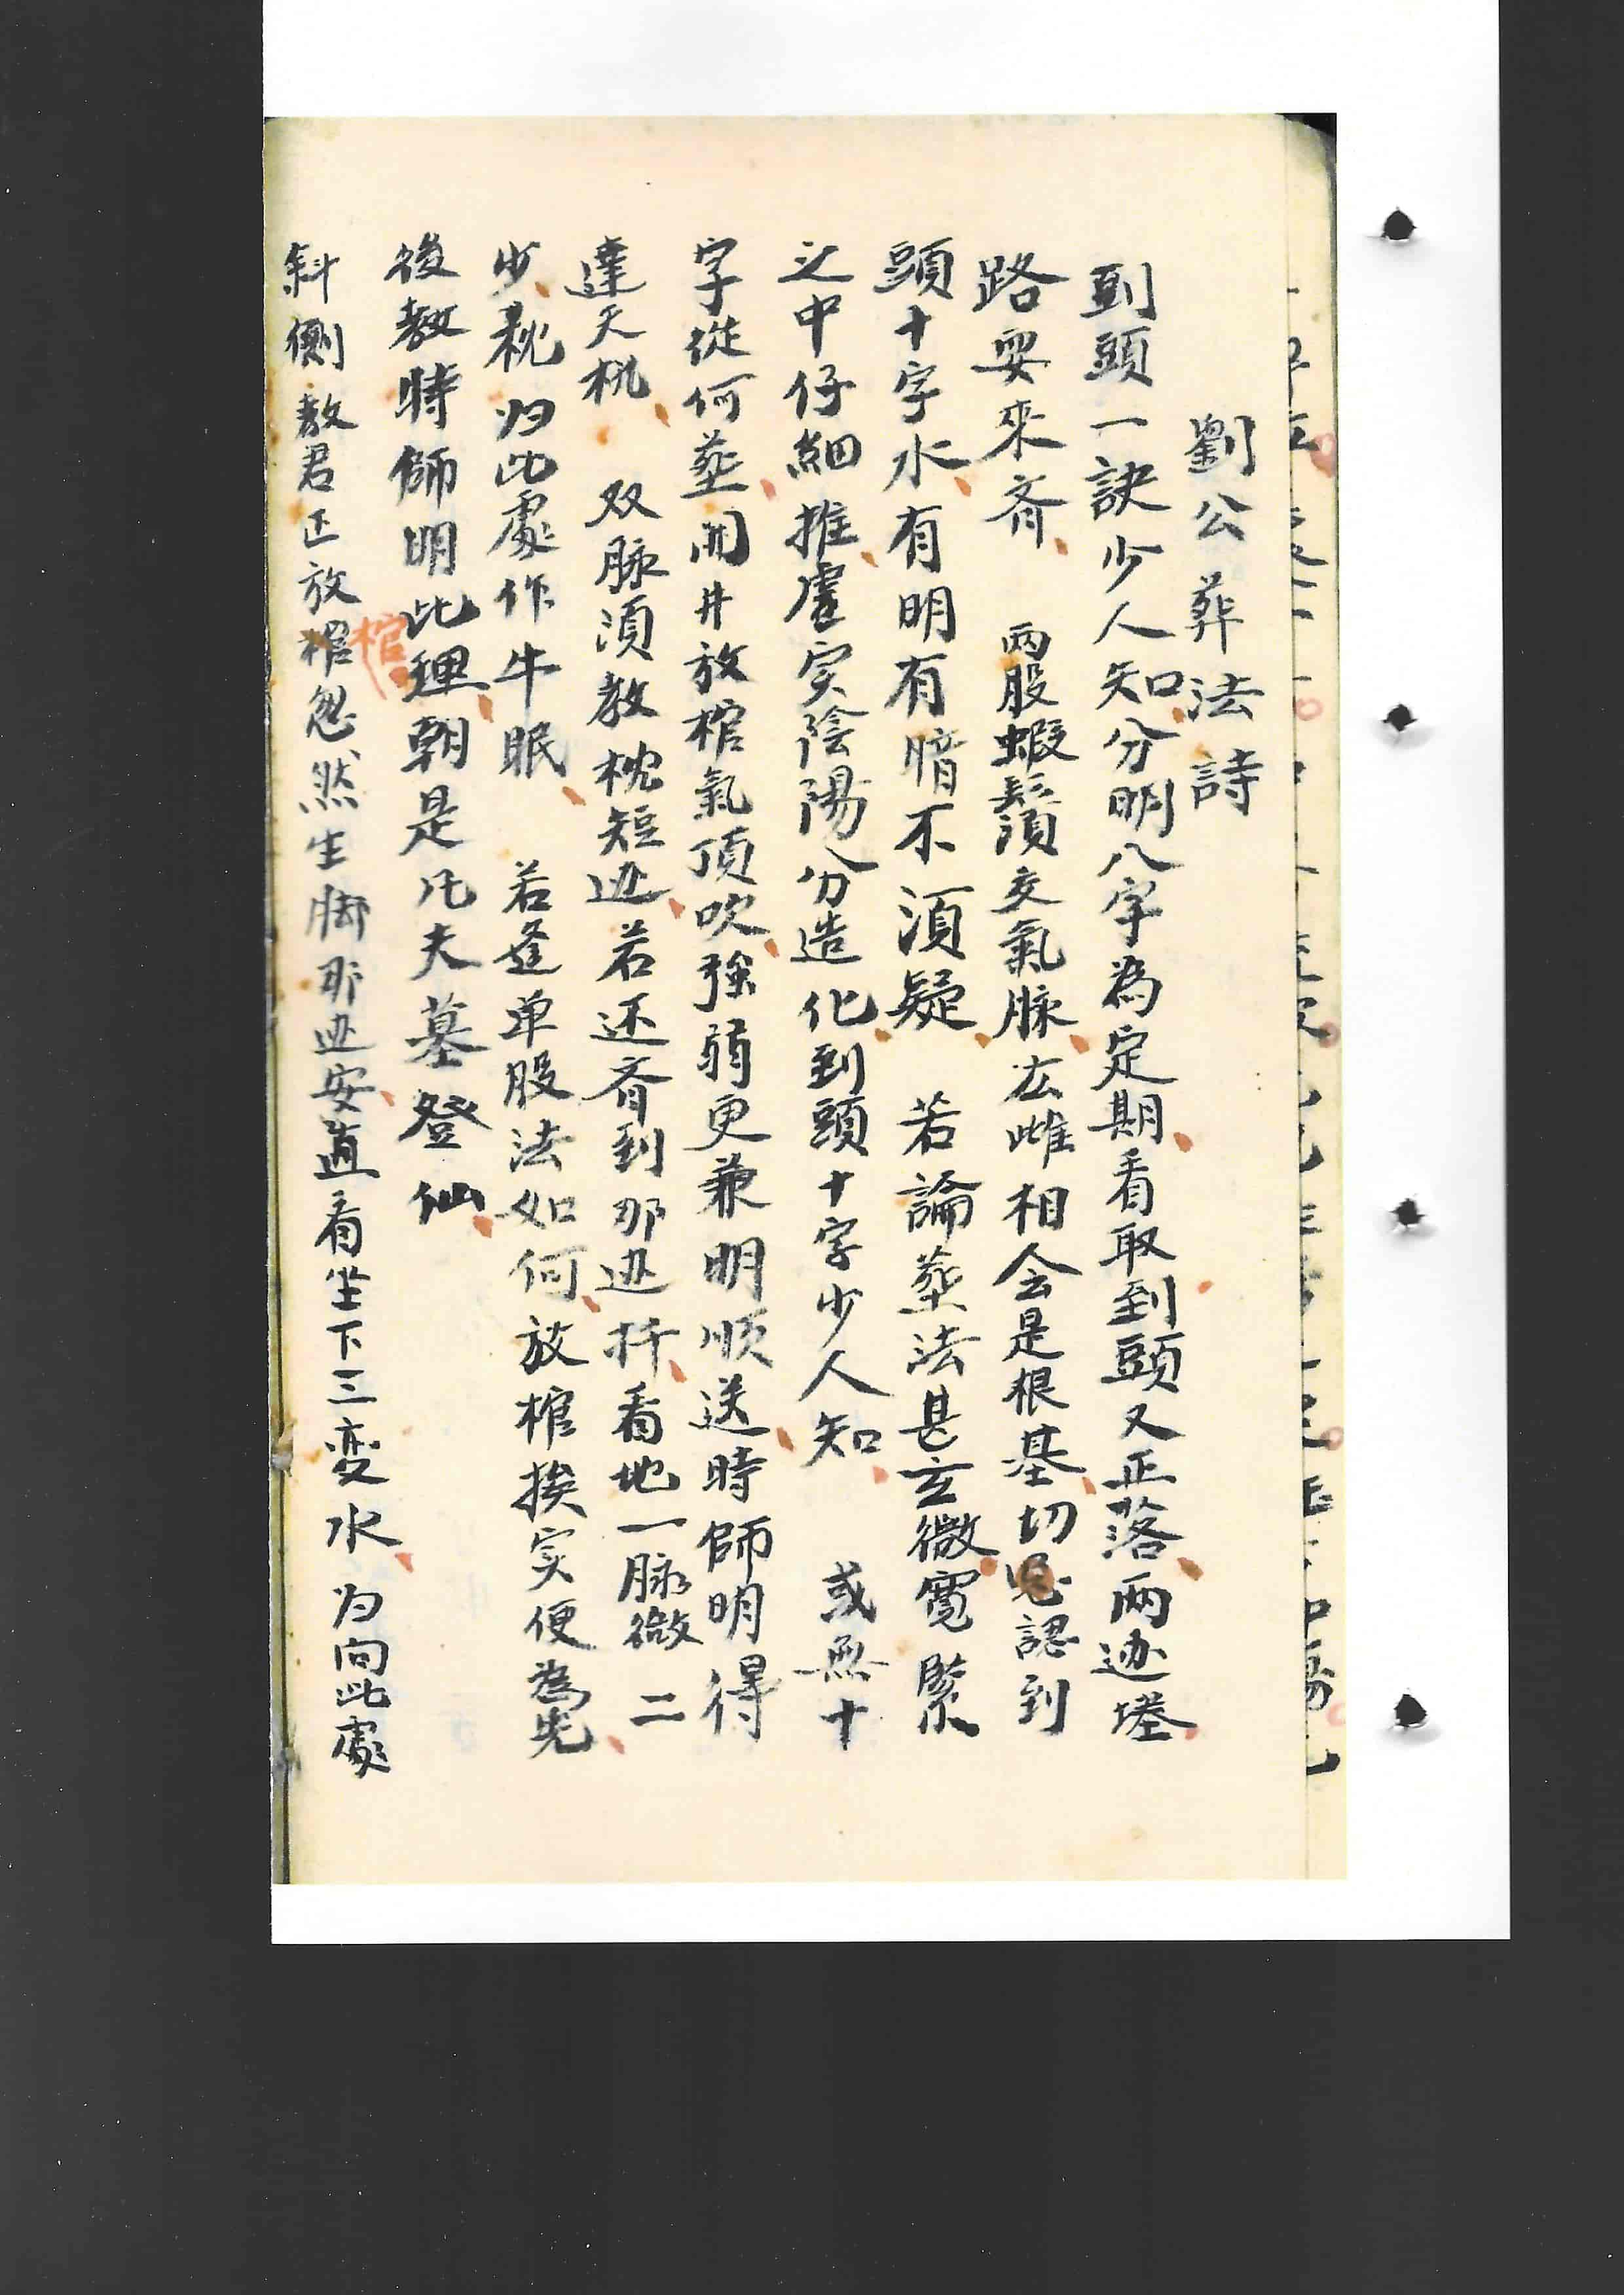 劉公葬法詩
到頭一訣少人知分明八字為定期看取到頭又正落两边堘
路要來齊 两股蝦鬚須交氣脉 雌相会是根基切 認到
頭十字水有明有暗不須疑 若論塟法甚玄微寛緊
之中仔細推虛实陰陽分造化到頭十字少人知 或無十
字從何塟開井放棺氣頂吹強弱更兼明順送時師明得
達天机 双脉須教枕短边若还齊到那边扦看地一脉微二
少 归此處作牛眠 若逢单股法如何放棺挨实便為先
後教時師明此理朝是凡夫墓登仙
斜側教君正放棺忽然生脚那边安直看坐下三变水 为向此處
棺